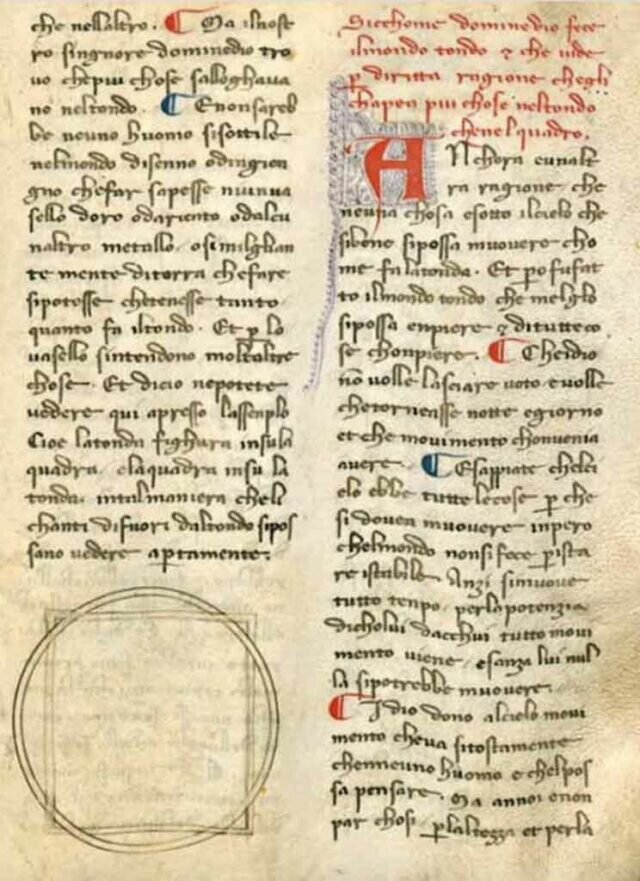 che nellaltro. Ma ilnost
ro singnore domodio tro
uo chepiu chose salloghaua
no neltondo. Enonsareb
be neuno huomo sisottile
nelmondo disenno odingion
gno chefar sapesse niunua
sello doro odariento odaleu
naltro metallo. osimilghian
te mente diterra chefare
sipotesse chetenesse tanto.
quanto fa iltondo. Et p lo
uasello sintendono moltaltre
chose. Et dicio nepotete
uedere qui apresso lassenplo
Cioe latonda fighura insula
quadra. elaquadra insu la
tonda. intalmaniera cheli
chanti difuori daltondo sipos
sano uedere aptamente.
Sicchome dominedio fece
ilmondo tondo z che uide
p diritta ragione chegli
chapea piu chose neltondo
chenel quadro.
ANchora eunalt
ra ragione che
neuna chosa esotto ilcielo che
sibene sipossa muouere cho
me fa latonda. Et po fu fat
to ilmondo tondo che melglo
sipossa enpiere z ditutte co
se chonpiere. Cheidio
nō uolle lasciare uoto euolle
chetornasse notte egiorno
et che mouimento chonuenia
auere. Esappiate chelci
elo ebbe tutte lecose p che
si douea muouere inpero
chelmondo nonsifece pista
re istabile. Anzi simuoue
tutto tenpo. perlapotenzia
dicholui dacchui tutto moui
mento uiene. esanza lui nul
la sipotrebbe muouere.
Idio dono alcielo moui
mento cheua sitostamente
chenneuno huomo e chelpos
sa pensare. Ma annoi enon
par chosi. plaltezza et perla